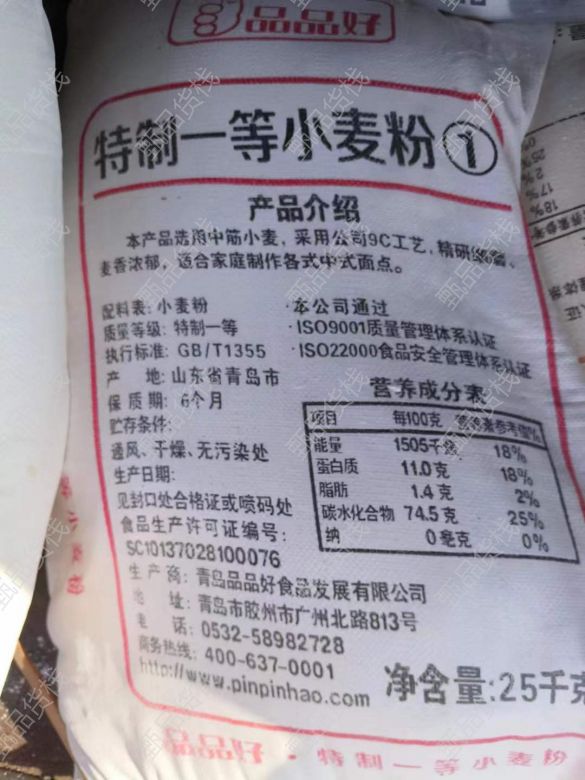 品品好
特制一等小麦粉①
产品介绍
本产品选用中筋小麦,采用公司9C工艺,精研细磨、
麦香浓郁,适合家庭制作各式中式面点。
配料表: 小麦粉
质量等级: 特制一等
执行标准: GB/T1355
产 地: 山东省青岛市
保 质 期: 6个月
贮存条件:
通风、干燥、无污染处
生产日期:
见封口处合格证或喷码处
食品生产许可证编号:
SC10137028100076
·本公司通过
·ISO9001质量管理体系认证
·ISO22000食品安全管理体系认证
营养成分表
项目 每100克 营养素参考值%
能量 1505千焦 18%
蛋白质 11.0克 18%
脂肪 1.4克 2%
碳水化合物 74.5克 25%
钠 0毫克 0%
生 产 商: 青岛品品好食品发展有限公司
地 址: 青岛市胶州市广州北路813号
电 话: 0532-58982728
商务热线: 400-637-0001
http://www.pinpinhao.com
净含量:25千克
品品好·特制一等小麦粉
等小麦粉
25%
2%
17%
18%
甄品货栈